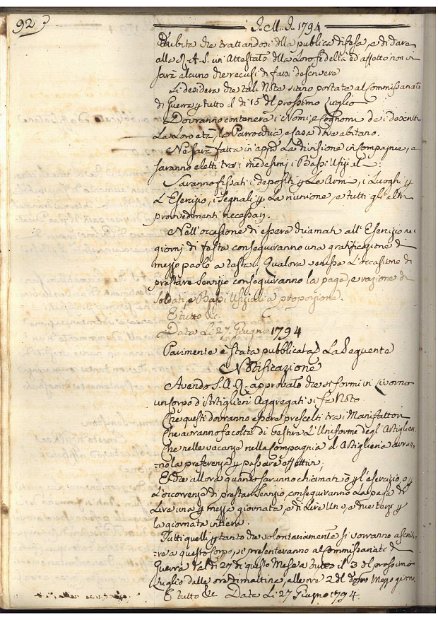 92
1794
dubita che trattandosi della publica difesa, e di dare
alle A.S. un Attestato della loro fedeltà ed affetto non vi
sarà alcuno che recusi di farsi descrivere
Si desidera che tali Note siano portate al Commissariato
di Guerra tutto il dì 15 del prossimo Luglio
Dovranno contenere i Nomi, e Cognomi dei
La Loro età la Parrochia, e Casa che abitano.
Ne sarà fatta in apresso la Divisione in Compagnie, e
saranno eletti tra i medesimi i
Saranno fissati i depositi per le Armi, i Luoghi per
L'Esercizio, i Segnali per la riunione, e tutti gli altri
provvedimenti necessarj.
Nell'occasione di essere chiamati all'Esercizio nei
giorni di festa conseguiranno una gratificazione di
mezzo paolo a testa. Qualora venisse l'occasione di
prestare servizio conseguiranno la paga, e razione di
Soldati, e Bassi Uffiziali a proporzione.
E tutto &c.
Data Li 27 Giugno 1794
Parimente è stata pubblicata La Seguente
Notificazione
Avendo S.A.R. approvato che si formi in Livorno
un Corpo d'Artiglieri Aggregati si fa Noto
Che questi dovranno essere prescelti tra i Manifattori
Che avranno facoltà di vestire L'Uniforme degl'Artiglieri
Che nelle vacanze nella Compagnia d'Artiglieria avran
no la preferenza
E che allora quando saranno chiamati per l'esercizio, e
L'occorenza di prestar Servizio conseguiranno La paga di
Lire una, e mezza giornata, e di Lire Una, e due terzi per
la giornata intiera.
Tutti quelli per tanto che volontariamente si vorranno ascri
vere a questo corpo, si presenteranno al Commissariato di
Guerra dal dì 27 di questo Mese a tutto il 3 del prossimo
Luglio delle ore di mattina, alle ore 2 del dopo Mezzo giorno
E tutto &c. Data Li 27 Giugno 1794.